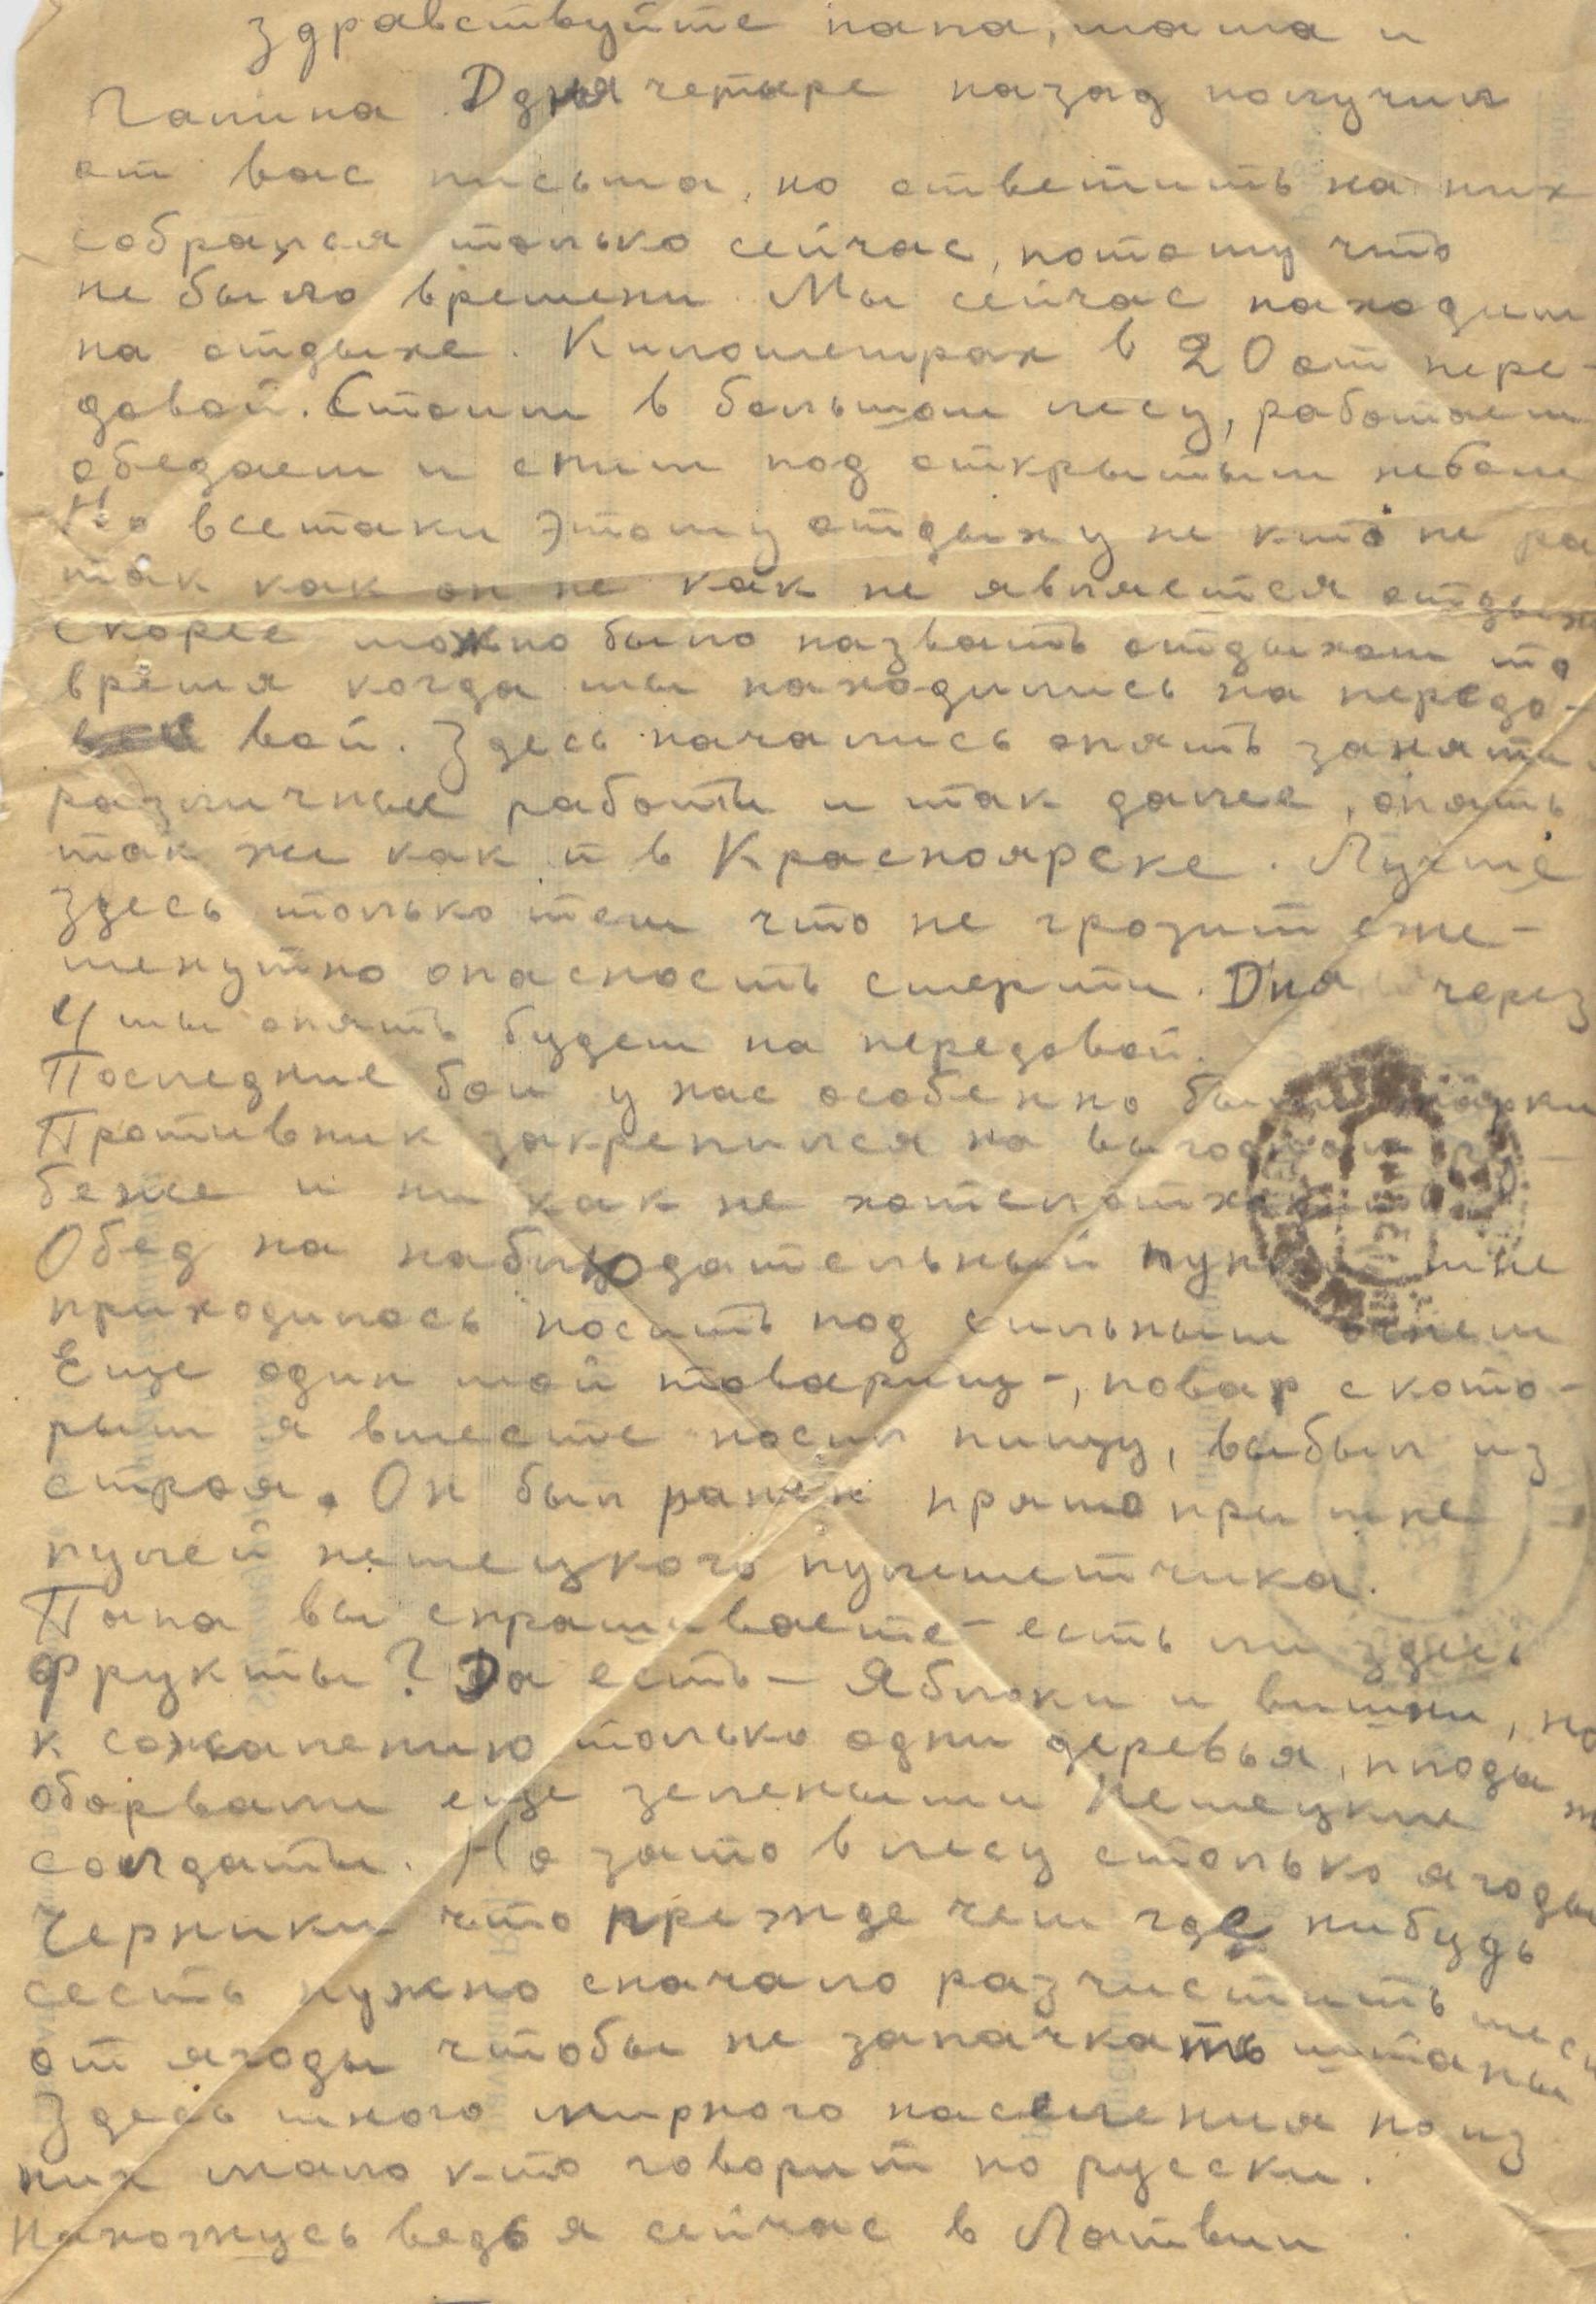 Здравствуйте папа, мама и
Галина. Дня четыре назад получил
от вас письма, но ответить на них
собрался только сейчас, потому что
не было времени. Мы сейчас находим
на отдыхе. Километрах в 20 от пере-
довой. Стоим в большом лесу, работаем
обедаем и спим под открытым небом
Но всетаки этому отдыху не кто не ра
так как он не как не является отдых
скорее можно было назвать отдыхом то
время когда мы находились на передо-
вой. Здесь начались опять заняти
различные работы и так далее, опять
так же как и в Красноярске. Лучше
здесь только тем что не грозит еже-
менутно опасность смерти. Дня через
4 мы опять будем на передовой.
Последние бои у нас особенно были жарки
Противник закрепился на выгодном ру-
беже и ни как не хотел
Обед на наблюдательный пункт мне
приходилось носить под сильным огнем
Еще один мой товарищ-, повар с кото-
рым я вместе носил пищу, выбыл из
строя. Он был ранен прямо при мне
пулей немецкого пулеметчика.
Папа вы спрашиваете- есть ли здесь
фрукты? Да есть- Яблоки и вишни, но
к сожалению только одни деревья, плоды
оборвали еще зелеными немецкие
солдаты. Но зато в лесу столько ягоды
Черники что прежде чем где нибудь
сесть нужно сначало разчистить мест
от ягоды чтобы не запачкать штаны
Здесь много мирного населения но из
них мало кто говорит по русски.
Нахожусь ведь я сейчас в Латвии